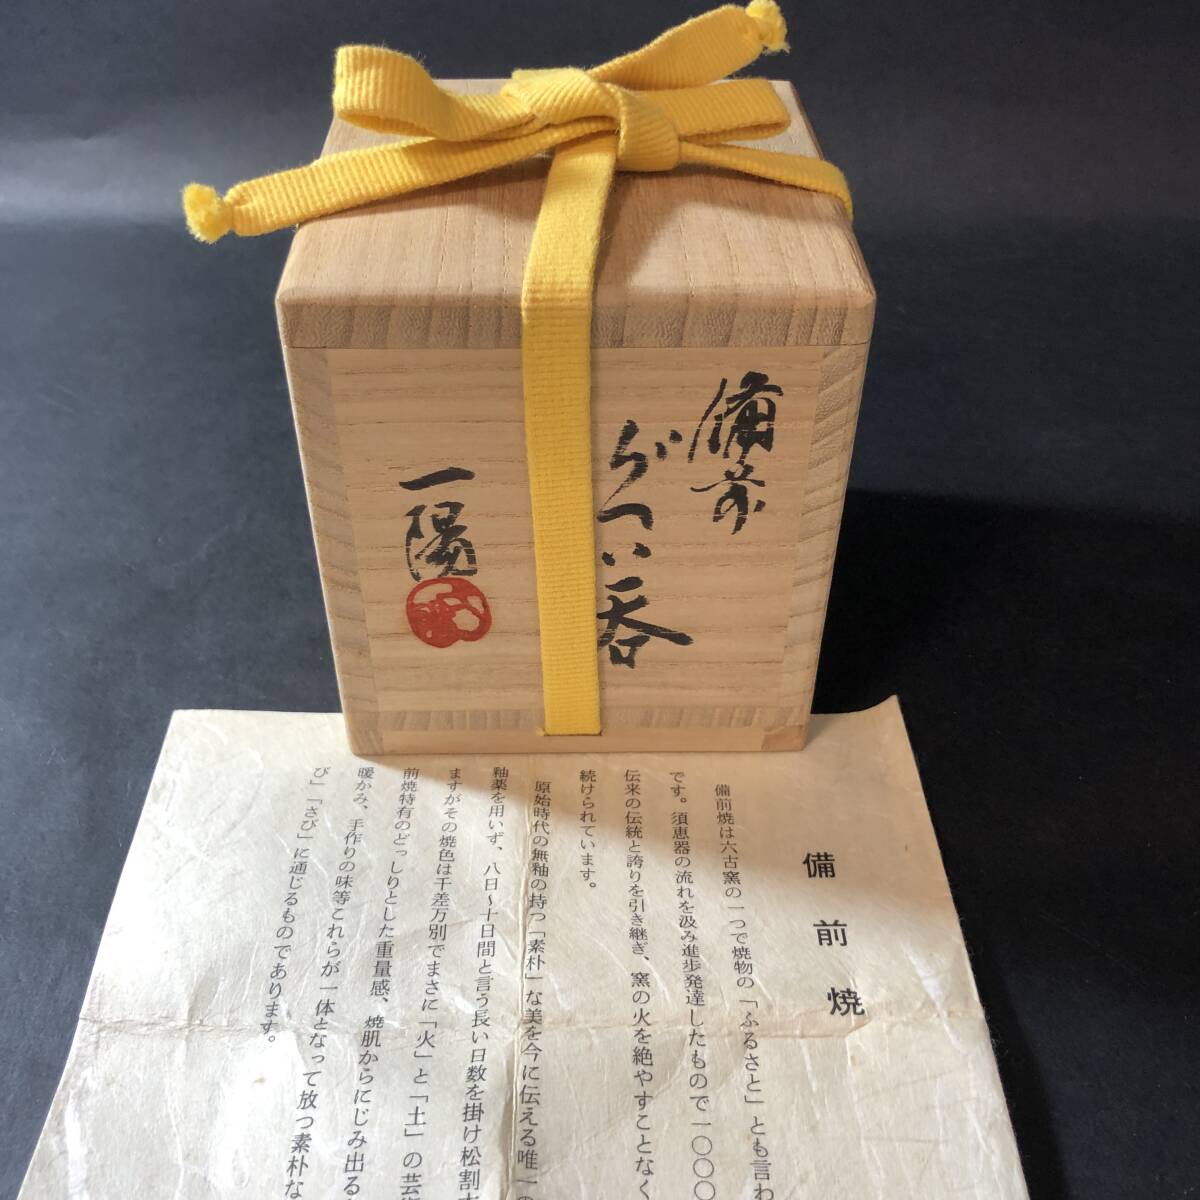 備前
ぐい呑
一陽
備前焼
備前焼は六古窯の一つで焼物の「ふるさと」とも言わ
です。須恵器の流れを汲み進歩発達したもので一〇〇〇
伝来の伝統と誇りを引き継ぎ、窯の火を絶やすことなく
続けられています。
原始時代の無釉の持つ「素朴」な美を今に伝える唯一の
釉薬を用いず、八日~十日間と言う長い日数を掛け松割木
ますがその焼色は千差万別でまさに「火」と「土」の芸術
前焼特有のどっしりとした重量感、焼肌からにじみ出る
暖かみ、手作りの味等これらが一体となって放つ素朴な
び」「さび」に通じるものであります。